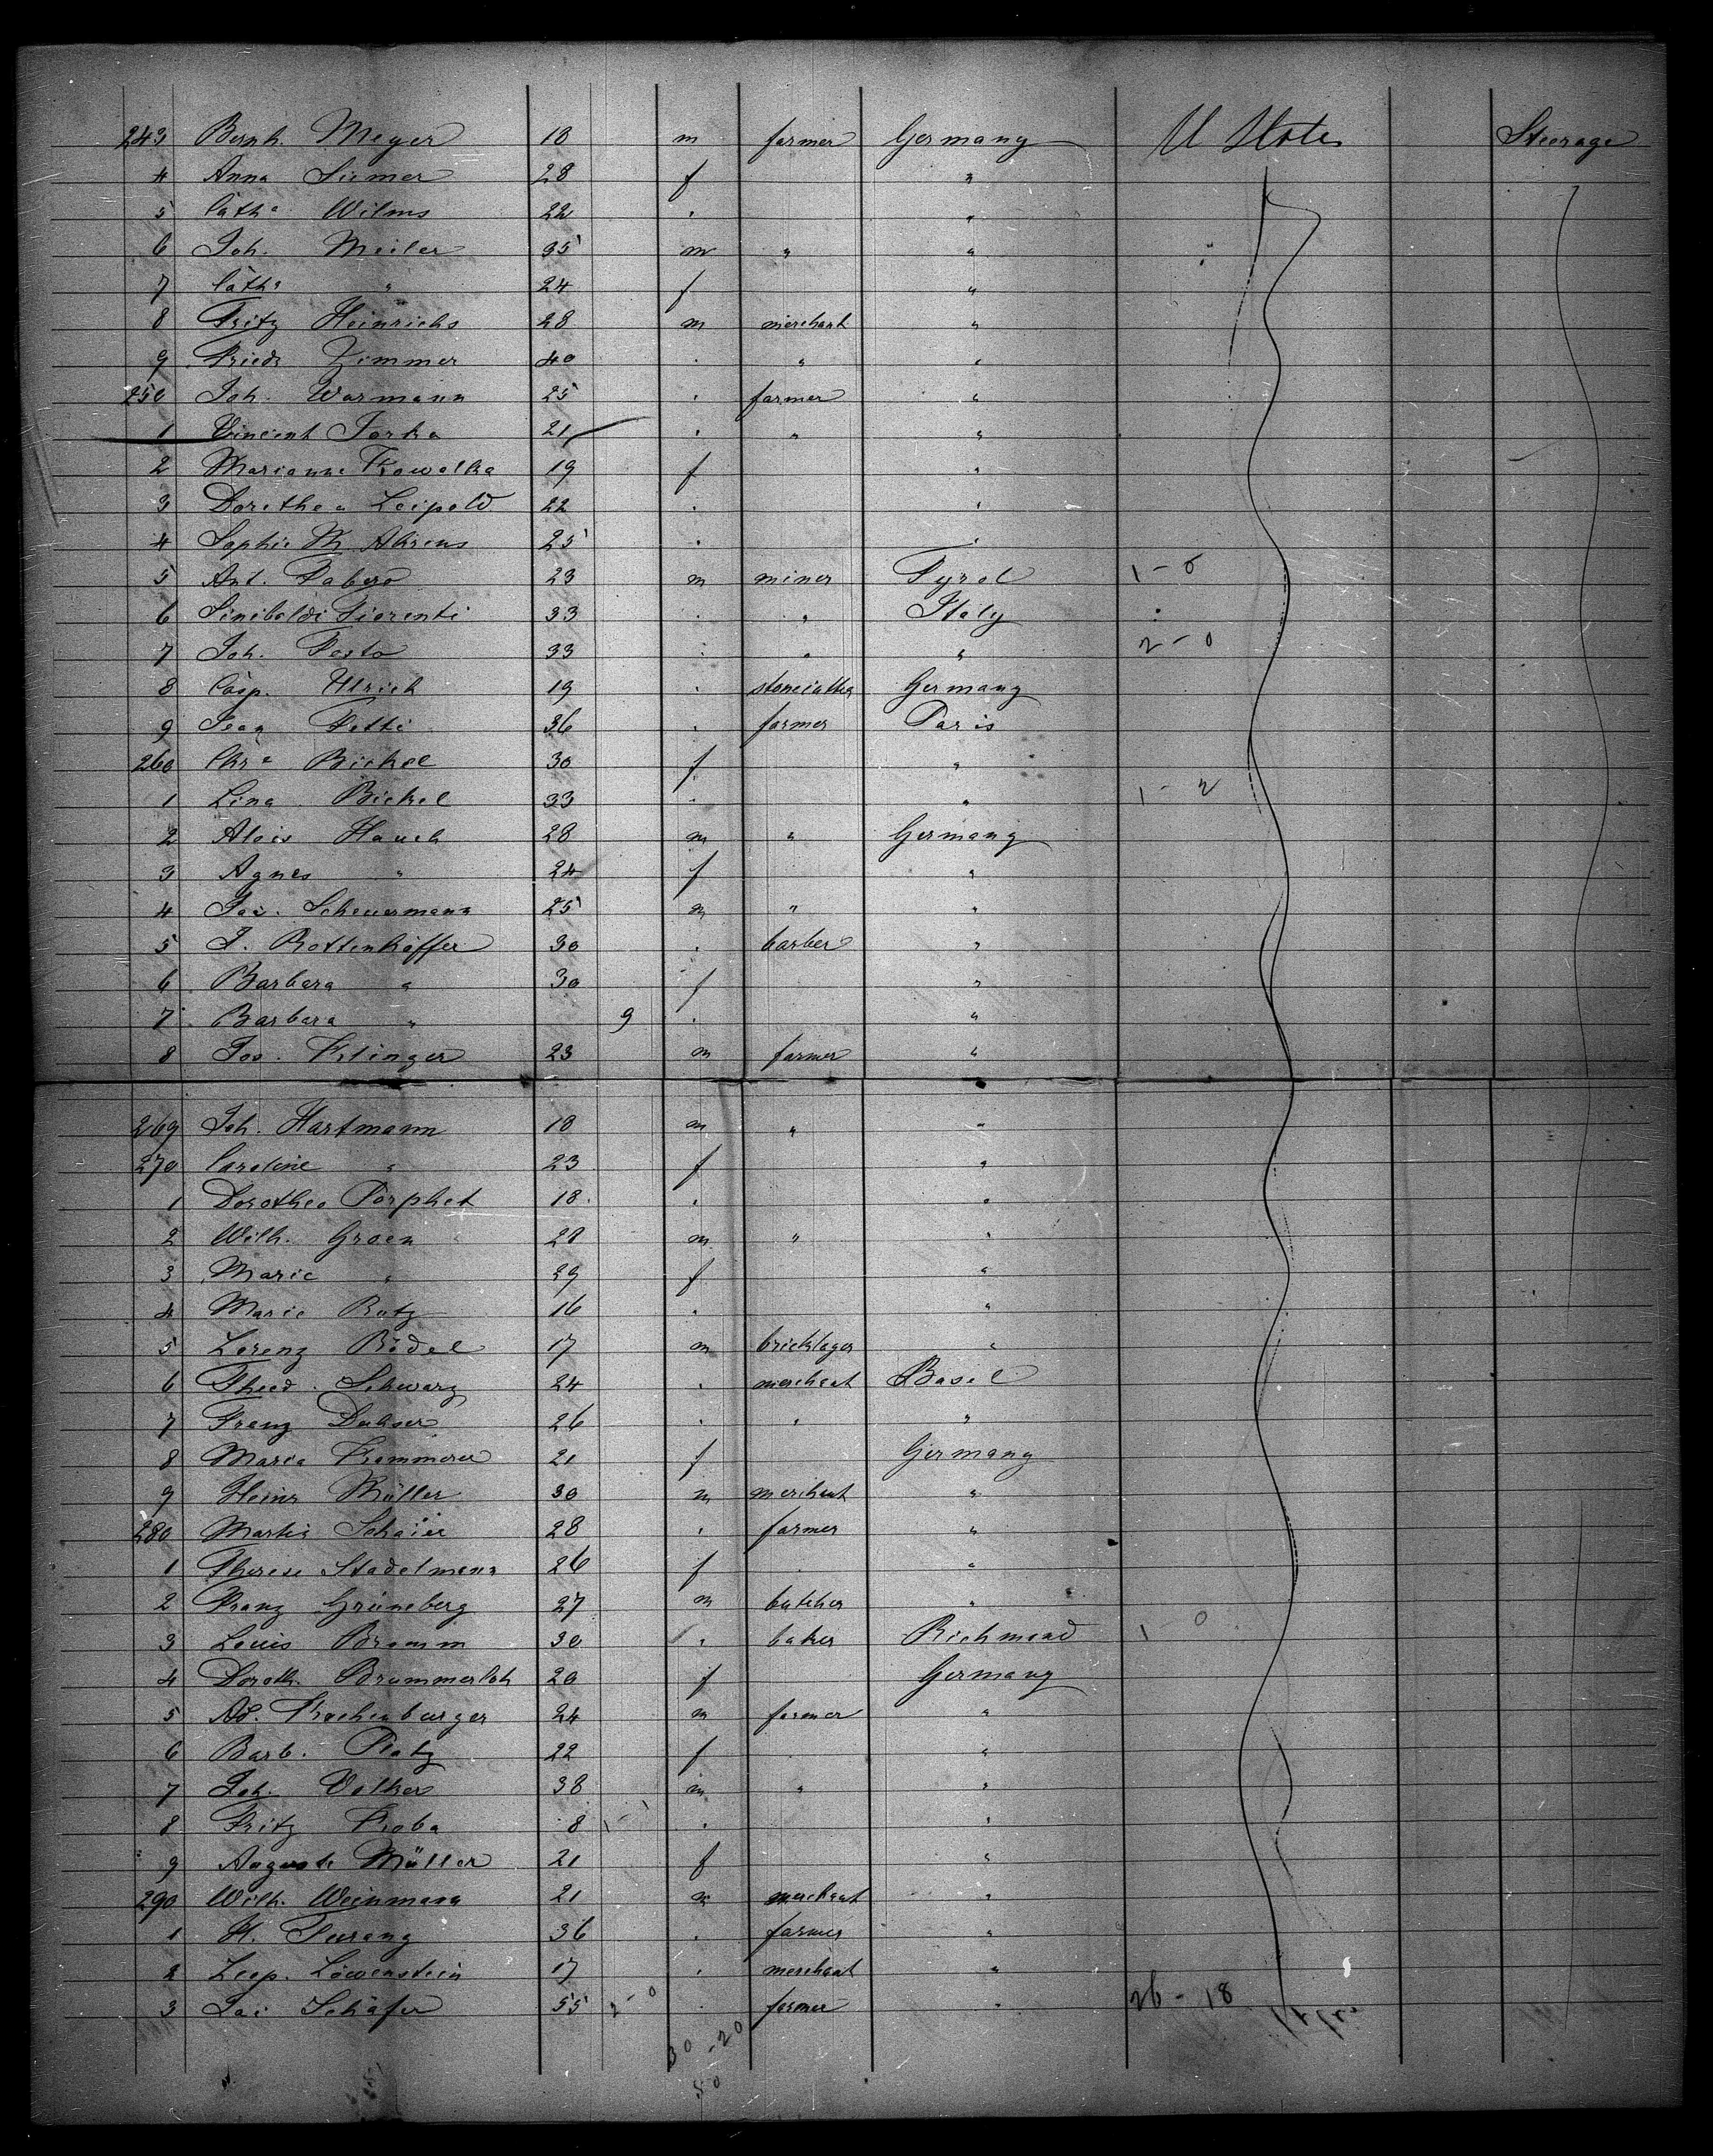 243 Bernh. Meyer 18 m farmer Germany U States Steerage
4 Anna Siemer 28 f "
5 Cath" Wilms 22 " "
6 Joh. Meiler 35 m " "
7 Cath" " 24 f "
8 Fritz Heinrichs 28 m merchant "
9 Friedr Zimmer 40 " " "
250 Joh. Warmann 25 " farmer "
1 Vincent Torka 21 " " "
2 Marianne Kowalka 19 f "
3 Dorethea Leipold 22 " "
4 Sophie M. Ahrens 25 " "
5 Ant. Fabero 23 m miner Tyrol 1-0
6 Sinibaldi Fiorenti 33 " " Italy
7 Joh. Testa 33 " " " 2-0
8 Casp. Ulrich 19 " stonecutter Germany
9 Jean Petti 36 " farmer Paris
260 Chr" Bickel 30 f "
1 Lina Bickel 33 " " 1-2
2 Alois Hauck 28 m " Germany
3 Agnes " 24 f "
4 Jac. Scheuermann 25 m " "
5 J. Rottenhöffer 30 " barber "
6 Barbara " 30 f "
7 Barbara " 9 " "
8 Jos. Erlinger 23 m farmer "
269 Joh. Hartmann 18 m " "
270 Caroline " 23 f "
1 Dorothea Porphet 18 " "
2 Wilh. Groen 28 m " "
3 Marie " 29 f "
4 Marie Rutz 16 " "
5 Lorenz Rödel 17 m bricklayer "
6 Theod. Schwarz 24 " merchant Basel
7 Franz Dubser 26 " " "
8 Maria Krammerer 21 f Germany
9 Heinr Müller 30 m merchant "
280 Martin Schaier 28 " farmer "
1 Therese Stadelmann 26 f "
2 Franz Grüneberg 27 m butcher "
3 Louis Bramm 30 " baker Richmond 1-0
4 Doroth. Brummerloh 20 f Germany
5 Ad. Kochenburger 24 m farmer "
6 Barb. Platz 22 f "
7 Joh. Volker 38 m " "
8 Fritz Kroba 8 1-1 " "
9 Auguste Müller 21 f "
290 Wilh. Weinmann 21 m merchant "
1 H. Turang 36 " farmer "
2 Leop. Löwenstein 17 " merchant "
3 Schäfer 55 2-0 " farmer " 26-18
30-20
50